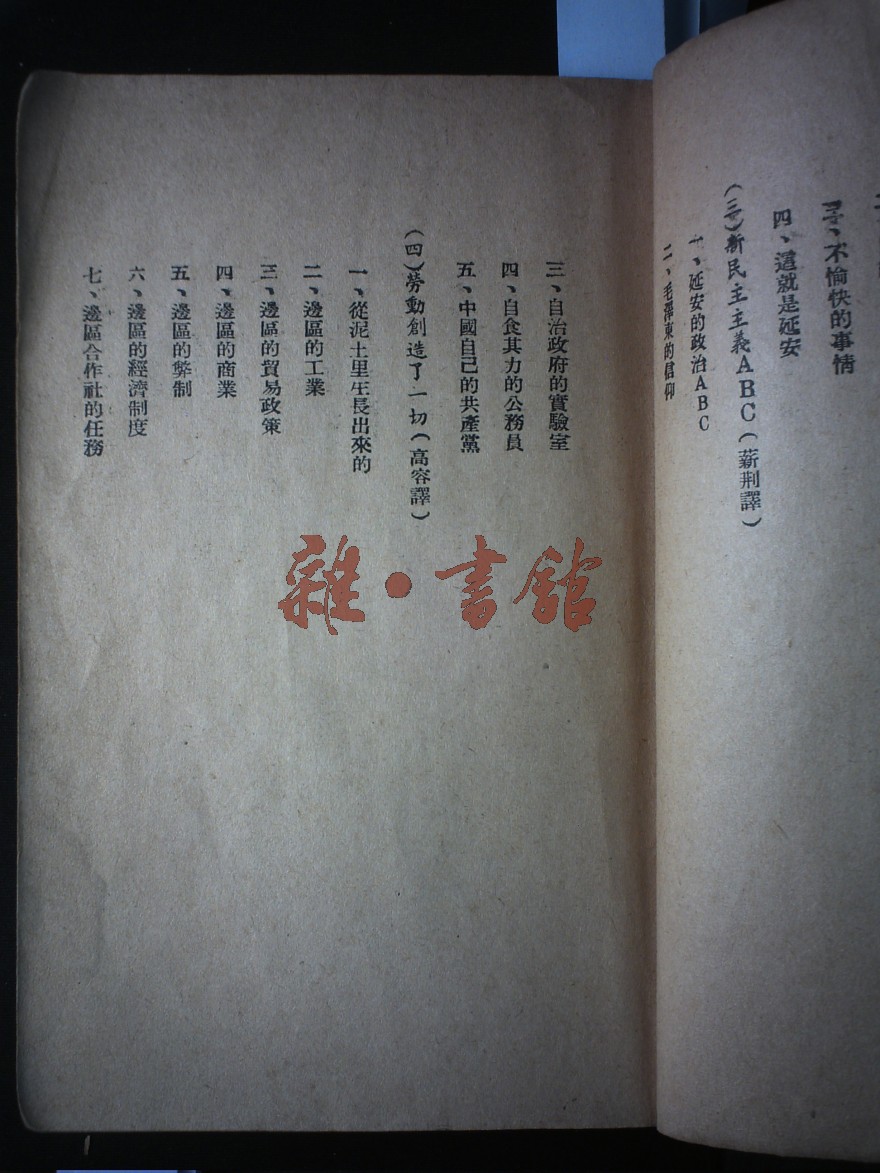 三、不愉快的事情
四、這就是延安
(三)新民主主義ABC(薪荆譯)
一、延安的政治ABC
二、毛澤東的信仰
三、自治政府的實驗室
四、自食其力的公務員
五、中國自己的共產黨
(四)勞動創造了一切(高容譯)
一、從泥土里生長出來的
二、邊區的工業
三、邊區的貿易政策
四、邊區的商業
五、邊區的弊制
六、邊區的經濟制度
七、邊區合作社的任務
雜·書館